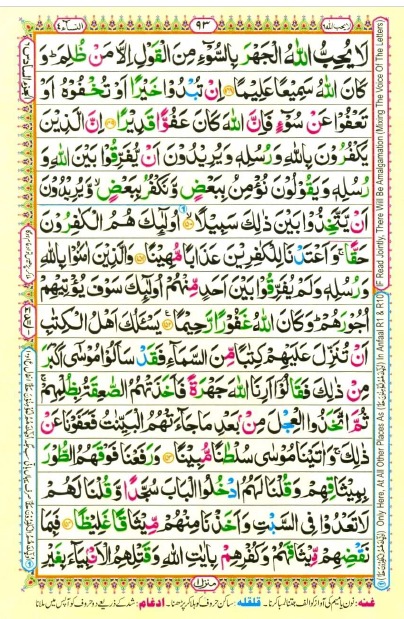 لا یحب اللہ ۶
۹۳
النسآء ۴
لَا يُحِبُّ اللّٰهُ الْجَهْرَ بِالسُّوْٓءِ مِنَ الْقَوْلِ اِلَّا مَنْ ظُلِمَ ؕ وَ
كَانَ اللّٰهُ سَمِيْعًا عَلِيْمًا ﴿۱۴۸﴾ اِنْ تُبْدُوْا خَيْرًا اَوْ تُخْفُوْهُ اَوْ
تَعْفُوْا عَنْ سُوْٓءٍ فَاِنَّ اللّٰهَ كَانَ عَفُوًّا قَدِيْرًا ﴿۱۴۹﴾ اِنَّ الَّذِيْنَ
يَكْفُرُوْنَ بِاللّٰهِ وَ رُسُلِهٖ وَ يُرِيْدُوْنَ اَنْ يُّفَرِّقُوْا بَيْنَ اللّٰهِ وَ
رُسُلِهٖ وَ يَقُوْلُوْنَ نُؤْمِنُ بِبَعْضٍ وَّ نَكْفُرُ بِبَعْضٍ ۙ وَّ يُرِيْدُوْنَ
اَنْ يَّتَّخِذُوْا بَيْنَ ذٰلِكَ سَبِيْلًا ﴿۱۵۰﴾ اُولٰٓئِكَ هُمُ الْكٰفِرُوْنَ
حَقًّا ۚ وَ اَعْتَدْنَا لِلْكٰفِرِيْنَ عَذَابًا مُّهِيْنًا ﴿۱۵۱﴾ وَ الَّذِيْنَ اٰمَنُوْا بِاللّٰهِ
وَ رُسُلِهٖ وَ لَمْ يُفَرِّقُوْا بَيْنَ اَحَدٍ مِّنْهُمْ اُولٰٓئِكَ سَوْفَ يُؤْتِيْهِمْ
اُجُوْرَهُمْ ؕ وَ كَانَ اللّٰهُ غَفُوْرًا رَّحِيْمًا ﴿۱۵۲﴾ يَسْـَٔلُكَ اَهْلُ الْكِتٰبِ
اَنْ تُنَزِّلَ عَلَيْهِمْ كِتٰبًا مِّنَ السَّمَآءِ فَقَدْ سَاَلُوْا مُوْسٰٓى اَكْبَرَ
مِنْ ذٰلِكَ فَقَالُوْٓا اَرِنَا اللّٰهَ جَهْرَةً فَاَخَذَتْهُمُ الصّٰعِقَةُ بِظُلْمِهِمْ ۚ
ثُمَّ اتَّخَذُوا الْعِجْلَ مِنْۢ بَعْدِ مَا جَآءَتْهُمُ الْبَيِّنٰتُ فَعَفَوْنَا عَنْ
ذٰلِكَ ۚ وَ اٰتَيْنَا مُوْسٰى سُلْطٰنًا مُّبِيْنًا ﴿۱۵۳﴾ وَ رَفَعْنَا فَوْقَهُمُ الطُّوْرَ
بِمِيْثَاقِهِمْ وَ قُلْنَا لَهُمُ ادْخُلُوا الْبَابَ سُجَّدًا وَّ قُلْنَا لَهُمْ
لَا تَعْدُوْا فِي السَّبْتِ وَ اَخَذْنَا مِنْهُمْ مِّيْثَاقًا غَلِيْظًا ﴿۱۵۴﴾ فَبِمَا
نَقْضِهِمْ مِّيْثَاقَهُمْ وَ كُفْرِهِمْ بِاٰيٰتِ اللّٰهِ وَ قَتْلِهِمُ الْاَنْۢبِيَآءَ بِغَيْرِ
منزل ۱
غنه: نون یا میم کی آواز کو الف جتنا لمبا کرنا۔ قلقله: ساکن حروف کو ہلا کر پڑھنا۔ ادغام: شد کے ذریعے دو حروف کو آپس میں ملانا
Only Here, At All Other Places As In Anfaal R1 & R10 (IF Read Jointly, There Will Be Amalgamation (Mixing The Voice Of The Letters)